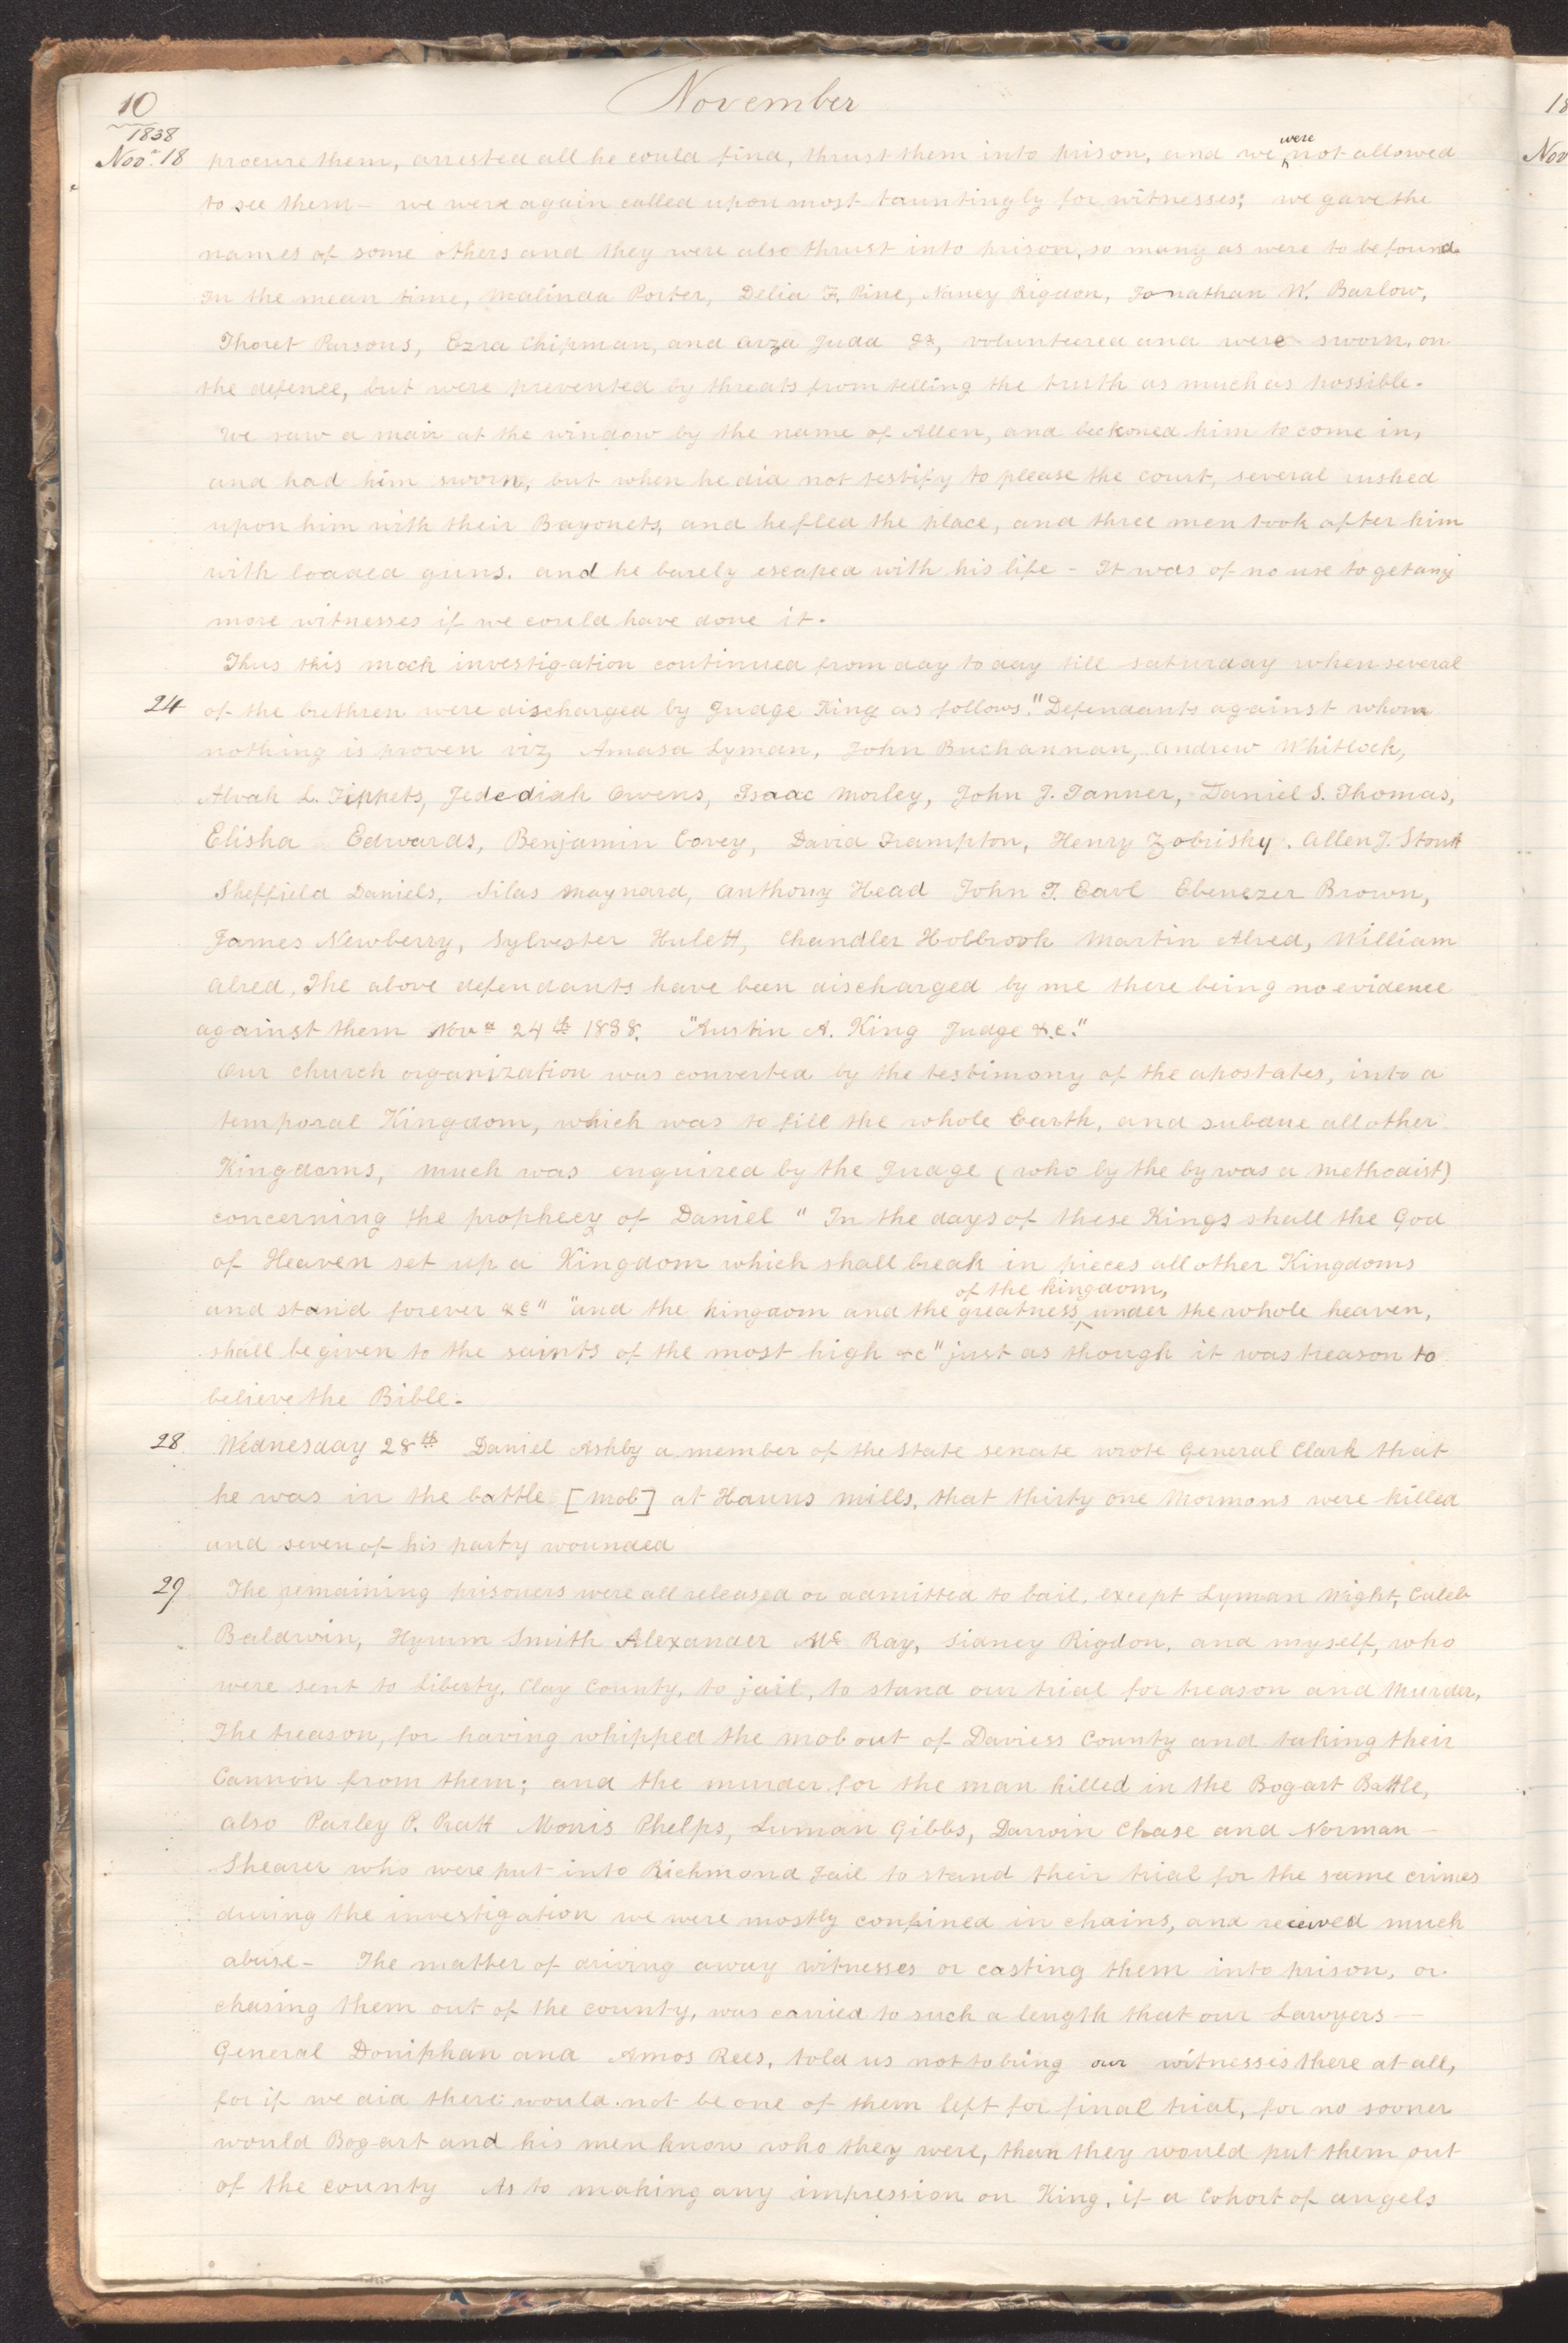 10
November
1838
Novr. 18 procure them, arrested all he could find, thrust them into prison, and we were not allowed
to see them - we were again called upon most tauntingly for witnesses; we gave the
names of some others and they were also thrust into prison, so many as were to be found
In the mean time, Malinda Porter, Delia F. Pine, Nancy Rigdon, Jonathan W. Barlow,
Thoret Parsons, Ezra Chipman, and Arza Judd Jr., volunteered and were sworn, on
the defence, but were prevented by threats from telling the truth as much as possible.
We saw a man at the window by the name of Allen, and beckoned him to come in,
and had him sworn, but when he did not testify to please the court, several rushed
upon him with their Bayonets, and he fled the place, and three men took after him
with loaded guns. and he barely escaped with his life - It was of no use to get any
more witnesses if we could have done it.
Thus this mock investigation continued from day to day till saturday when several
24 of the brethren were discharged by Judge King as follows. "Defendants against whom
nothing is proven viz, Amasa Lyman, John Buchannan, Andrew Whitlock,
Alvah L. Tippets, Jedediah Owens, Isaac Morley, John J. Tanner, Daniel S. Thomas,
Elisha Edwards, Benjamin Covey, David Frampton, Henry Zobrisky. Allen J. Stout
Sheffield Daniels, Silas Maynard, Anthony Head John T. Earl Ebenezer Brown,
James Newberry, Sylvester Hulett, Chandler Holbrook Martin Alred, William
Alred, The above defendants have been discharged by me there being no evidence
against them Novr 24th 1838. "Austin A. King Judge &.c."
Our church organization was converted by the testimony of the apostates, into a
temporal Kingdom, which was to fill the whole Earth, and subdue all other
Kingdoms, much was enquired by the Judge (who by the by was a methodist)
concerning the prophecy of Daniel "In the days of these Kings shall the God
of Heaven set up a Kingdom which shall break in pieces all other Kingdoms
and stand forever &c" "and the kingdom and the greatness of the kingdom, under the whole heaven,
shall be given to the saints of the most high &c" just as though it was treason to
believe the Bible.
28 Wednesday 28th Daniel Ashby a member of the State senate wrote General Clark that
he was in the battle [mob] at Hauns mills, that thirty one Mormons were killed
and seven of his party wounded
29 The remaining prisoners were all released or admitted to bail, except Lyman Wight, Caleb
Baldwin, Hyrum Smith Alexander Mc Ray, Sidney Rigdon, and myself, who
were sent to Liberty, Clay County, to jail, to stand our trial for treason and Murder,
The treason, for having whipped the mob out of Daviess County and taking their
Cannon from them; and the murder for the man killed in the Bogart Battle,
also Parley P. Pratt Morris Phelps, Luman Gibbs, Darwin Chase and Norman -
Shearer who were put into Richmond Jail to stand their trial for the same crimes
during the investigation we were mostly confined in chains, and received much
abuse - The matter of driving away witnesses or casting them into prison, or
chasing them out of the county, was carried to such a length that our Lawyers -
General Doniphan and Amos Rees, told us not to bring our witnesses there at all,
for if we did there would not be one of them left for final trial, for no sooner
would Bogart and his men know who they were, than they would put them out
of the county As to making any impression on King, if a Cohort of angels
18
Nov